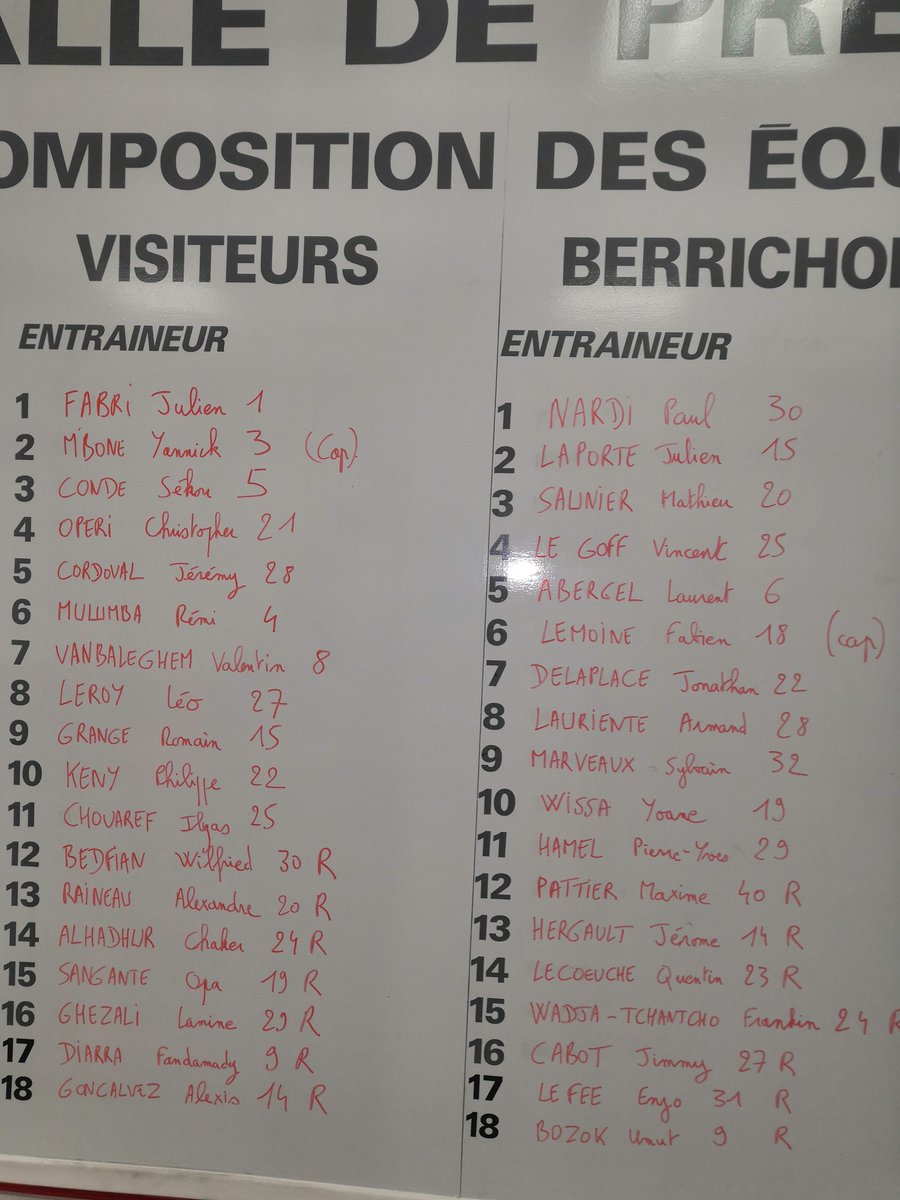 ALLE DE PRE
OMPOSITION DES ÉQU
VISITEURS
ENTRAINEUR
1 FABRI Julien 1
2 M'BONE Yannick 3 (Cap)
3 CONDE Sékou 5
4 OPERI Christopher 21
5 CORDOVAL Jérémy 28
6 MULUMBA Rémi 4
7 VANBALEGHEM Valentin 8
8 LEROY Léo 27
9 GRANGE Romain 15
10 KENY Philippe 22
11 CHOUAREF Ilyas 25
12 BEDFIAN Wilfried 30 R
13 RAINEAU Alexandre 20 R
14 ALHADHUR Chaker 24 R
15 SANGANTE Opa 19 R
16 GHEZALI Lamine 29 R
17 DIARRA Fandamady 9 R
18 GONCALVEZ Alexis 14 R
BERRICHO
ENTRAINEUR
1 NARDI Paul 30
2 LAPORTE Julien 15
3 SAUNIER Mathieu 20
4 LE GOFF Vincent 25
5 ABERGEL Laurent 6
6 LEMOINE Fabien 18 (cap)
7 DELAPLACE Jonathan 22
8 LAURIENTE Armand 28
9 MARVEAUX Sylvain 32
10 WISSA Yoane 19
11 HAMEL Pierre-Yves 29
12 PATTIER Maxime 40 R
13 HERGAULT Jérome 14 R
14 LECOEUCHE Quentin 23 R
15 WADJA-TCHANTCHO Franklin 24 R
16 CABOT Jimmy 27 R
17 LE FEE Enzo 31 R
18 BOZOK Umut 9 R